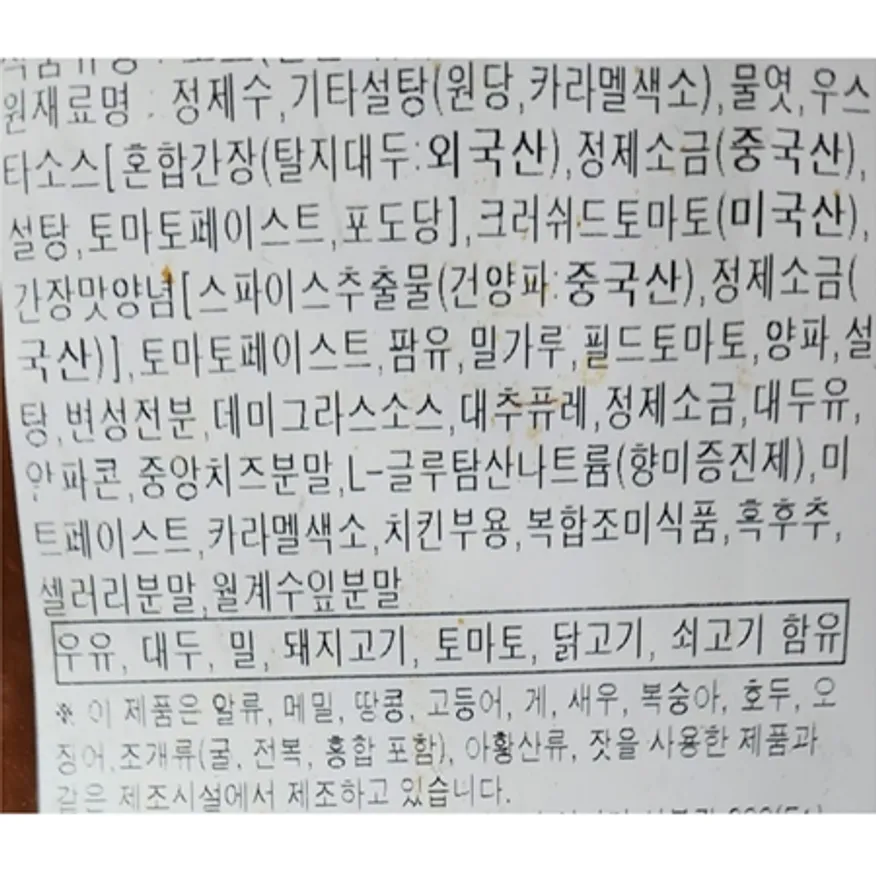 원재료명 : 정제수,기타설탕(원당,카라멜색소),물엿,우스
타소스[혼합간장(탈지대두:외국산),정제소금(중국산),
설탕,토마토페이스트,포도당],크러쉬드토마토(미국산),
간장맛양념[스파이스추출물(건양파:중국산),정제소금(
국산)],토마토페이스트,팜유,밀가루,필드토마토,양파,설
탕,변성전분,데미그라스소스,대추퓨레,정제소금,대두유,
양파콘,중앙치즈분말,L-글루탐산나트륨(향미증진제),미
트페이스트,카라멜색소,치킨부용,복합조미식품,흑후추,
셀러리분말,월계수잎분말
우유, 대두, 밀, 돼지고기, 토마토, 닭고기, 쇠고기 함유
※ 이 제품은 알류, 메밀, 땅콩, 고등어, 게, 새우, 복숭아, 호두, 오
징어,조개류(굴, 전복, 홍합 포함), 아황산류, 잣을 사용한 제품과
같은 제조시설에서 제조하고 있습니다.